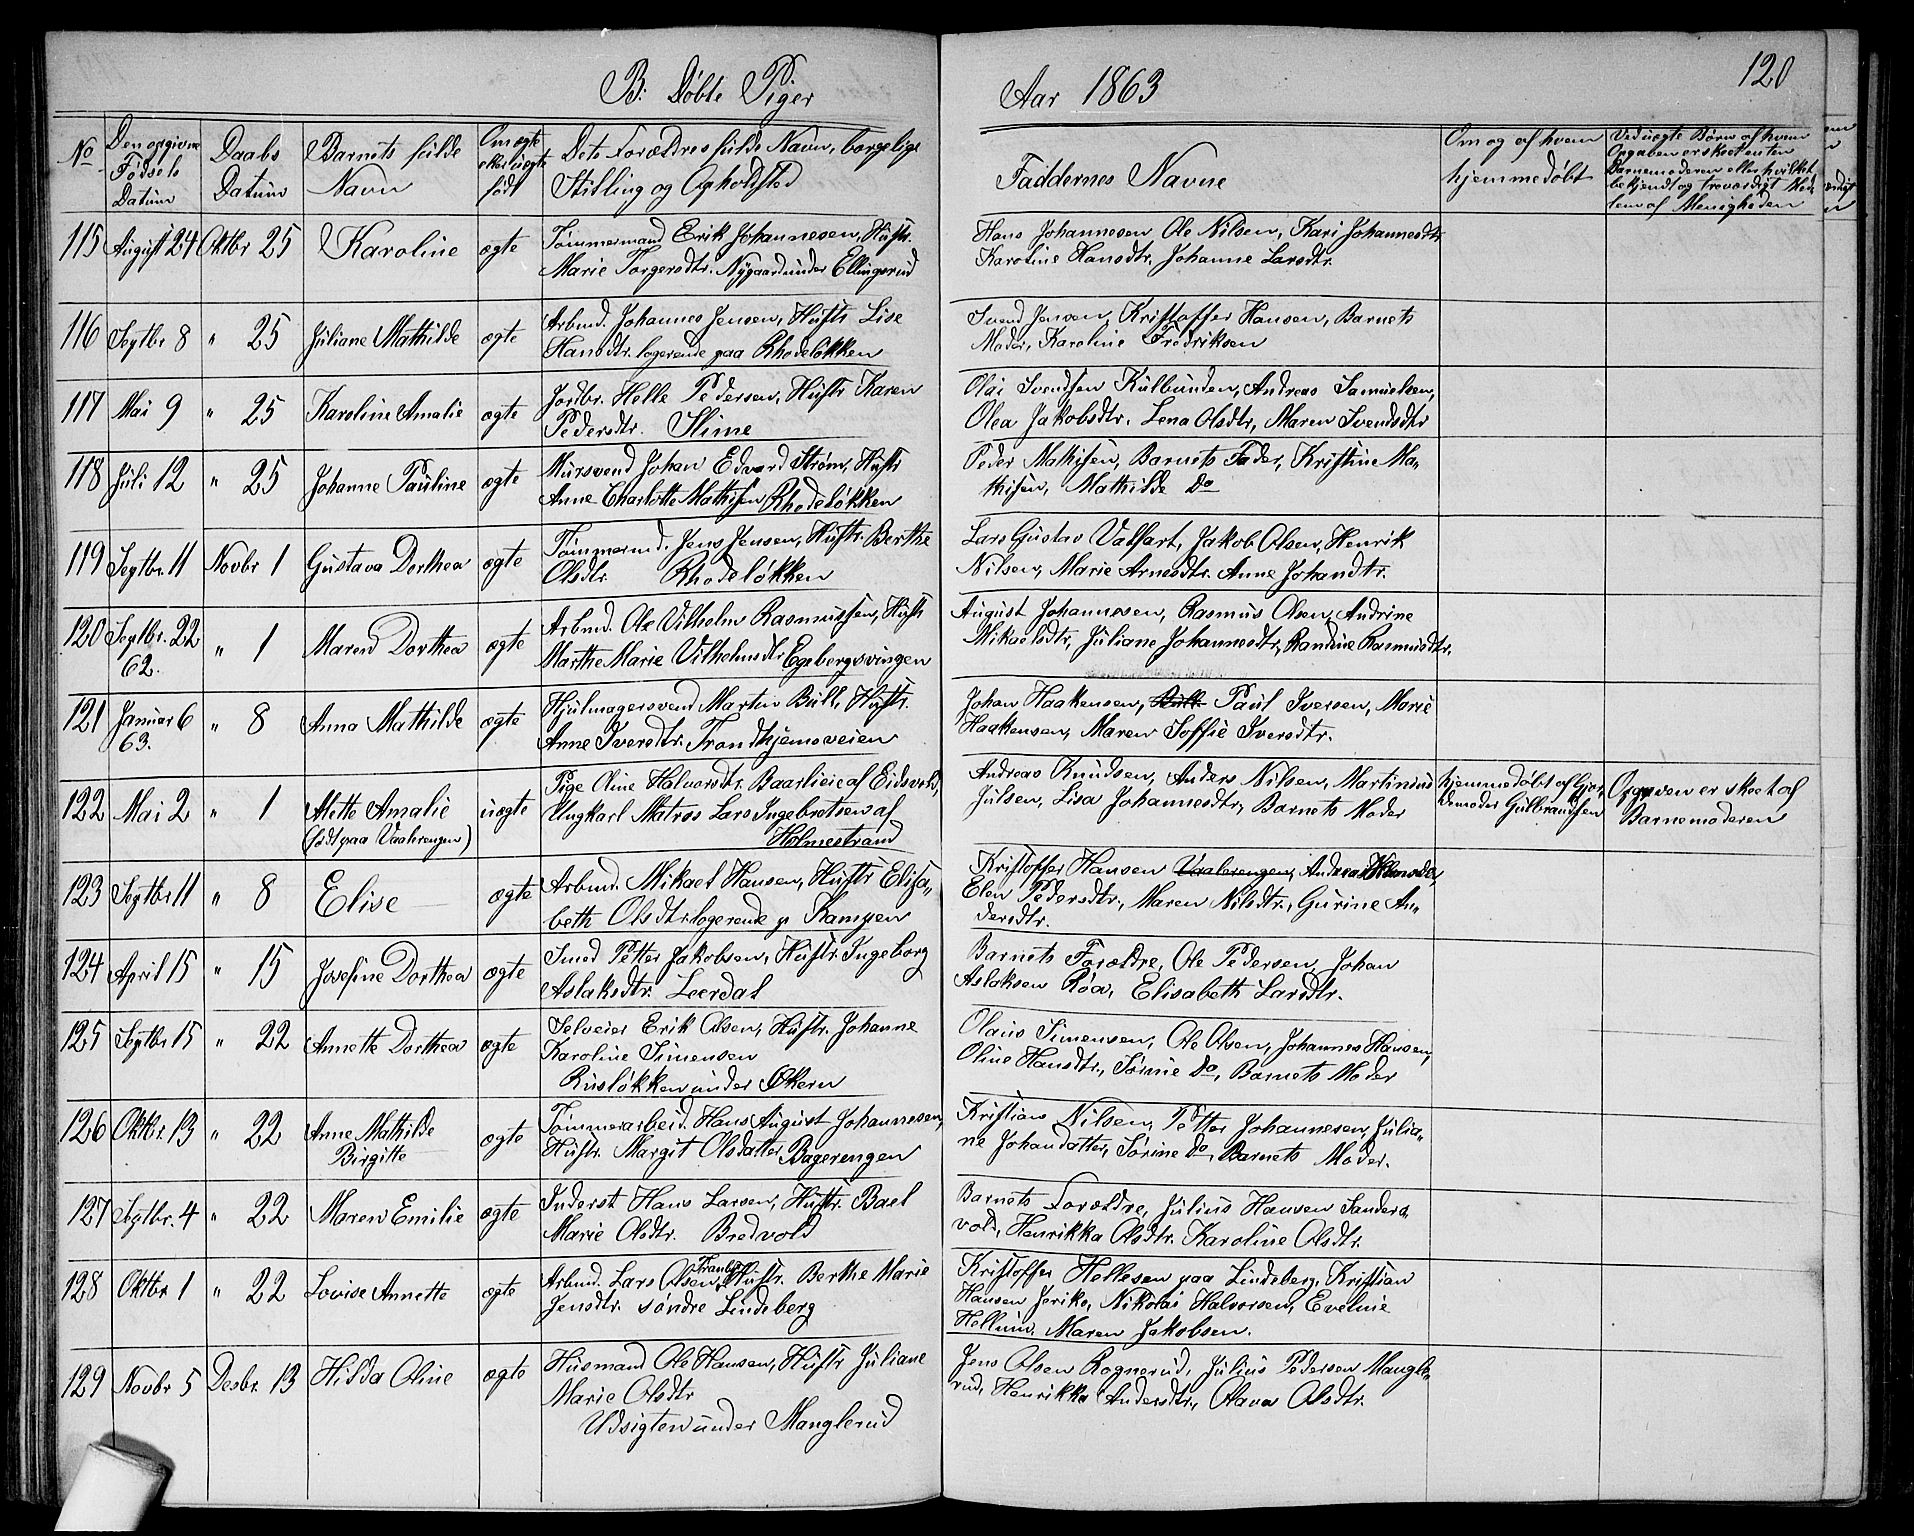 B. Døbte Piger
Aar 1863
120
No
Den opgivne
Fødsels
Datum
Daabs
Datum
Barnets fulde
Navn
Om ægte
eller uægte
født
Dets Forældres fulde Navn, borgelige
Stilling og Opholdsted
Faddernes Navne
Om og af hvem
hjemmedøbt
Ved uægte Børn af hvem
Opgaven er skeet enten
Barnemoderen eller hvilket
bekjendt og troværdigt Med
lem af Menigheden
115 August 24 Oktbr 25 Karoline ægte
Tømmermand Erik Johannesen, Hustr.
Marie Torgersdtr. Nygaard under Ellingsrud
Hans Johannesen Ole Nilsen, Kari Johannesdtr
Karoline Hansdtr. Johanne Larsdtr.
116 Septbr 8 " 25 Juliane Mathilde ægte
Arbmd. Johannes Jensen, Hustr Lise
Hansdtr. logerende paa Rhodeløkken
Svend Jensen, Kristoffer Hansen, Barnets
Moder, Karoline Fredriksen
117 Mai 9 " 25 Karoline Amalie ægte
Jordbr. Helle Pedersen, Hustr Karen
Pedersdtr. Slime
Olai Svendsen Kulbunden, Andreas Samuelsen,
Olea Jakobsdtr. Lena Olsdtr, Maren Svendsdtr
118 Juli 12 " 25 Johanne Pauline ægte
Mursvend Johan Edvard Strøm, Hustr
Anne Charlotte Mathisen Rhodeløkken
Peder Mathisen, Barnets Fader, Kristine Ma-
thisen, Mathilde Do
119 Septbr. 11 Novbr 1 Gustava Dorthea ægte
Tømmermd. Jens Jensen, Hustr. Berthe
Olsdtr. Rhodeløkken
Lars Gustav Valfart, Jakob Olsen, Henrik
Nilsen, Marie Arnesdtr. Anne Johandtr.
120 Septbr. 22 " 1 Maren Dorthea ægte
62.
Arbmd. Ole Vilhelm Rasmussen, Hustr
Marthe Marie Vilhelmsdtr Egebergsvingen
August Johannesen, Rasmus Olsen, Andrine
Mikaelsdtr, Juliane Johannesdtr, Randine Rasmusdtr.
121 Januar 6 " 8 Anna Mathilde ægte
63.
Hjulmagersvend Martin Bull, Hustr.
Anne Iversdtr. Trondhjemsveien
Johan Haakensen, Bull Paul Iversen, Marie
Haakensen, Maren Soffie Iversdtr.
122 Mai 2 " 1 Alette Amalie uægte
(født paa Vaalerengen)
Pige Oline Halvorsdtr. Baarlieie af Eidsvold,
Ungkarl Matros Lars Ingebretsen af
Holmestrand
Andreas Knudsen, Anders Nilsen, Martinius
Julsen, Lisa Johannesdtr, Barnets Moder
hjemmedøbt af Gjor-
demoder Gulbrandsen
Opgaven er skeet af
Barnemoderen
123 Septbr 11 " 8 Elise ægte
Arbmd. Mikael Hansen, Hustr Elisa-
beth Olsdtr logerende p Kampen
Kristoffer Hansen Vaalerengen,
Elen Pedersdtr., Maren Nilsdtr., Gurine An-
dersdtr.
124 April 15 " 15 Josefine Dorthea ægte
Smed Petter Jakobsen, Hustr. Ingeborg
Aslaksdtr. Leerdal
Barnets Forældre, Ole Pedersen, Johan
Aslaksen Røa, Elisabeth Larsdtr.
125 Septbr 15 " 22 Annette Dorthea ægte
Selveier Erik Olsen, Hustr. Johanne
Karoline Simensen
Rusløkken under Økern
Olaus Simensen, Ole Olsen, Johannes Hansen,
Oline Hansdtr., Sørine Do, Barnets Moder
126 Oktbr. 13 " 22 Anne Mathilde ægte
Birgitte
Tømmerarbeid. Hans August Johannesen,
Hustr. Margit Olsdatter Bagerengen
Kristian Nilsen, Petter Johannesen, Julia-
ne Johandatter, Sørine Do, Barnets Moder.
127 Septbr. 4 " 22 Maren Emilie ægte
Inderst Hans Larsen, Hustr. Bael
Marie Olsdtr. Bredvold
Barnets Forældre, Julius Hansen Sanders-
vold, Henrikka Olsdtr. Karoline Olsdtr.
128 Oktbr 1 " 22 Lovise Annette ægte
Arbmd. Lars Olsen, Hustr. Berthe Marie
Jensdtr. søndre Lindeberg
Kristoffer Hellesen paa Lindeberg, Kristian
Hansen Jeriko, Nikolai Halvorsen, Eveline
Hellum, Maren Jakobsen.
129 Novbr 5 Desbr. 13 Hilda Oline ægte
Husmand Ole Hansen, Hustr Juliane
Marie Olsdtr
Udsigten under Manglerud
Jens Olsen Rognerud, Julius Pedersen Mangle-
rud, Henrikka Andersdtr., Olava Olsdtr.